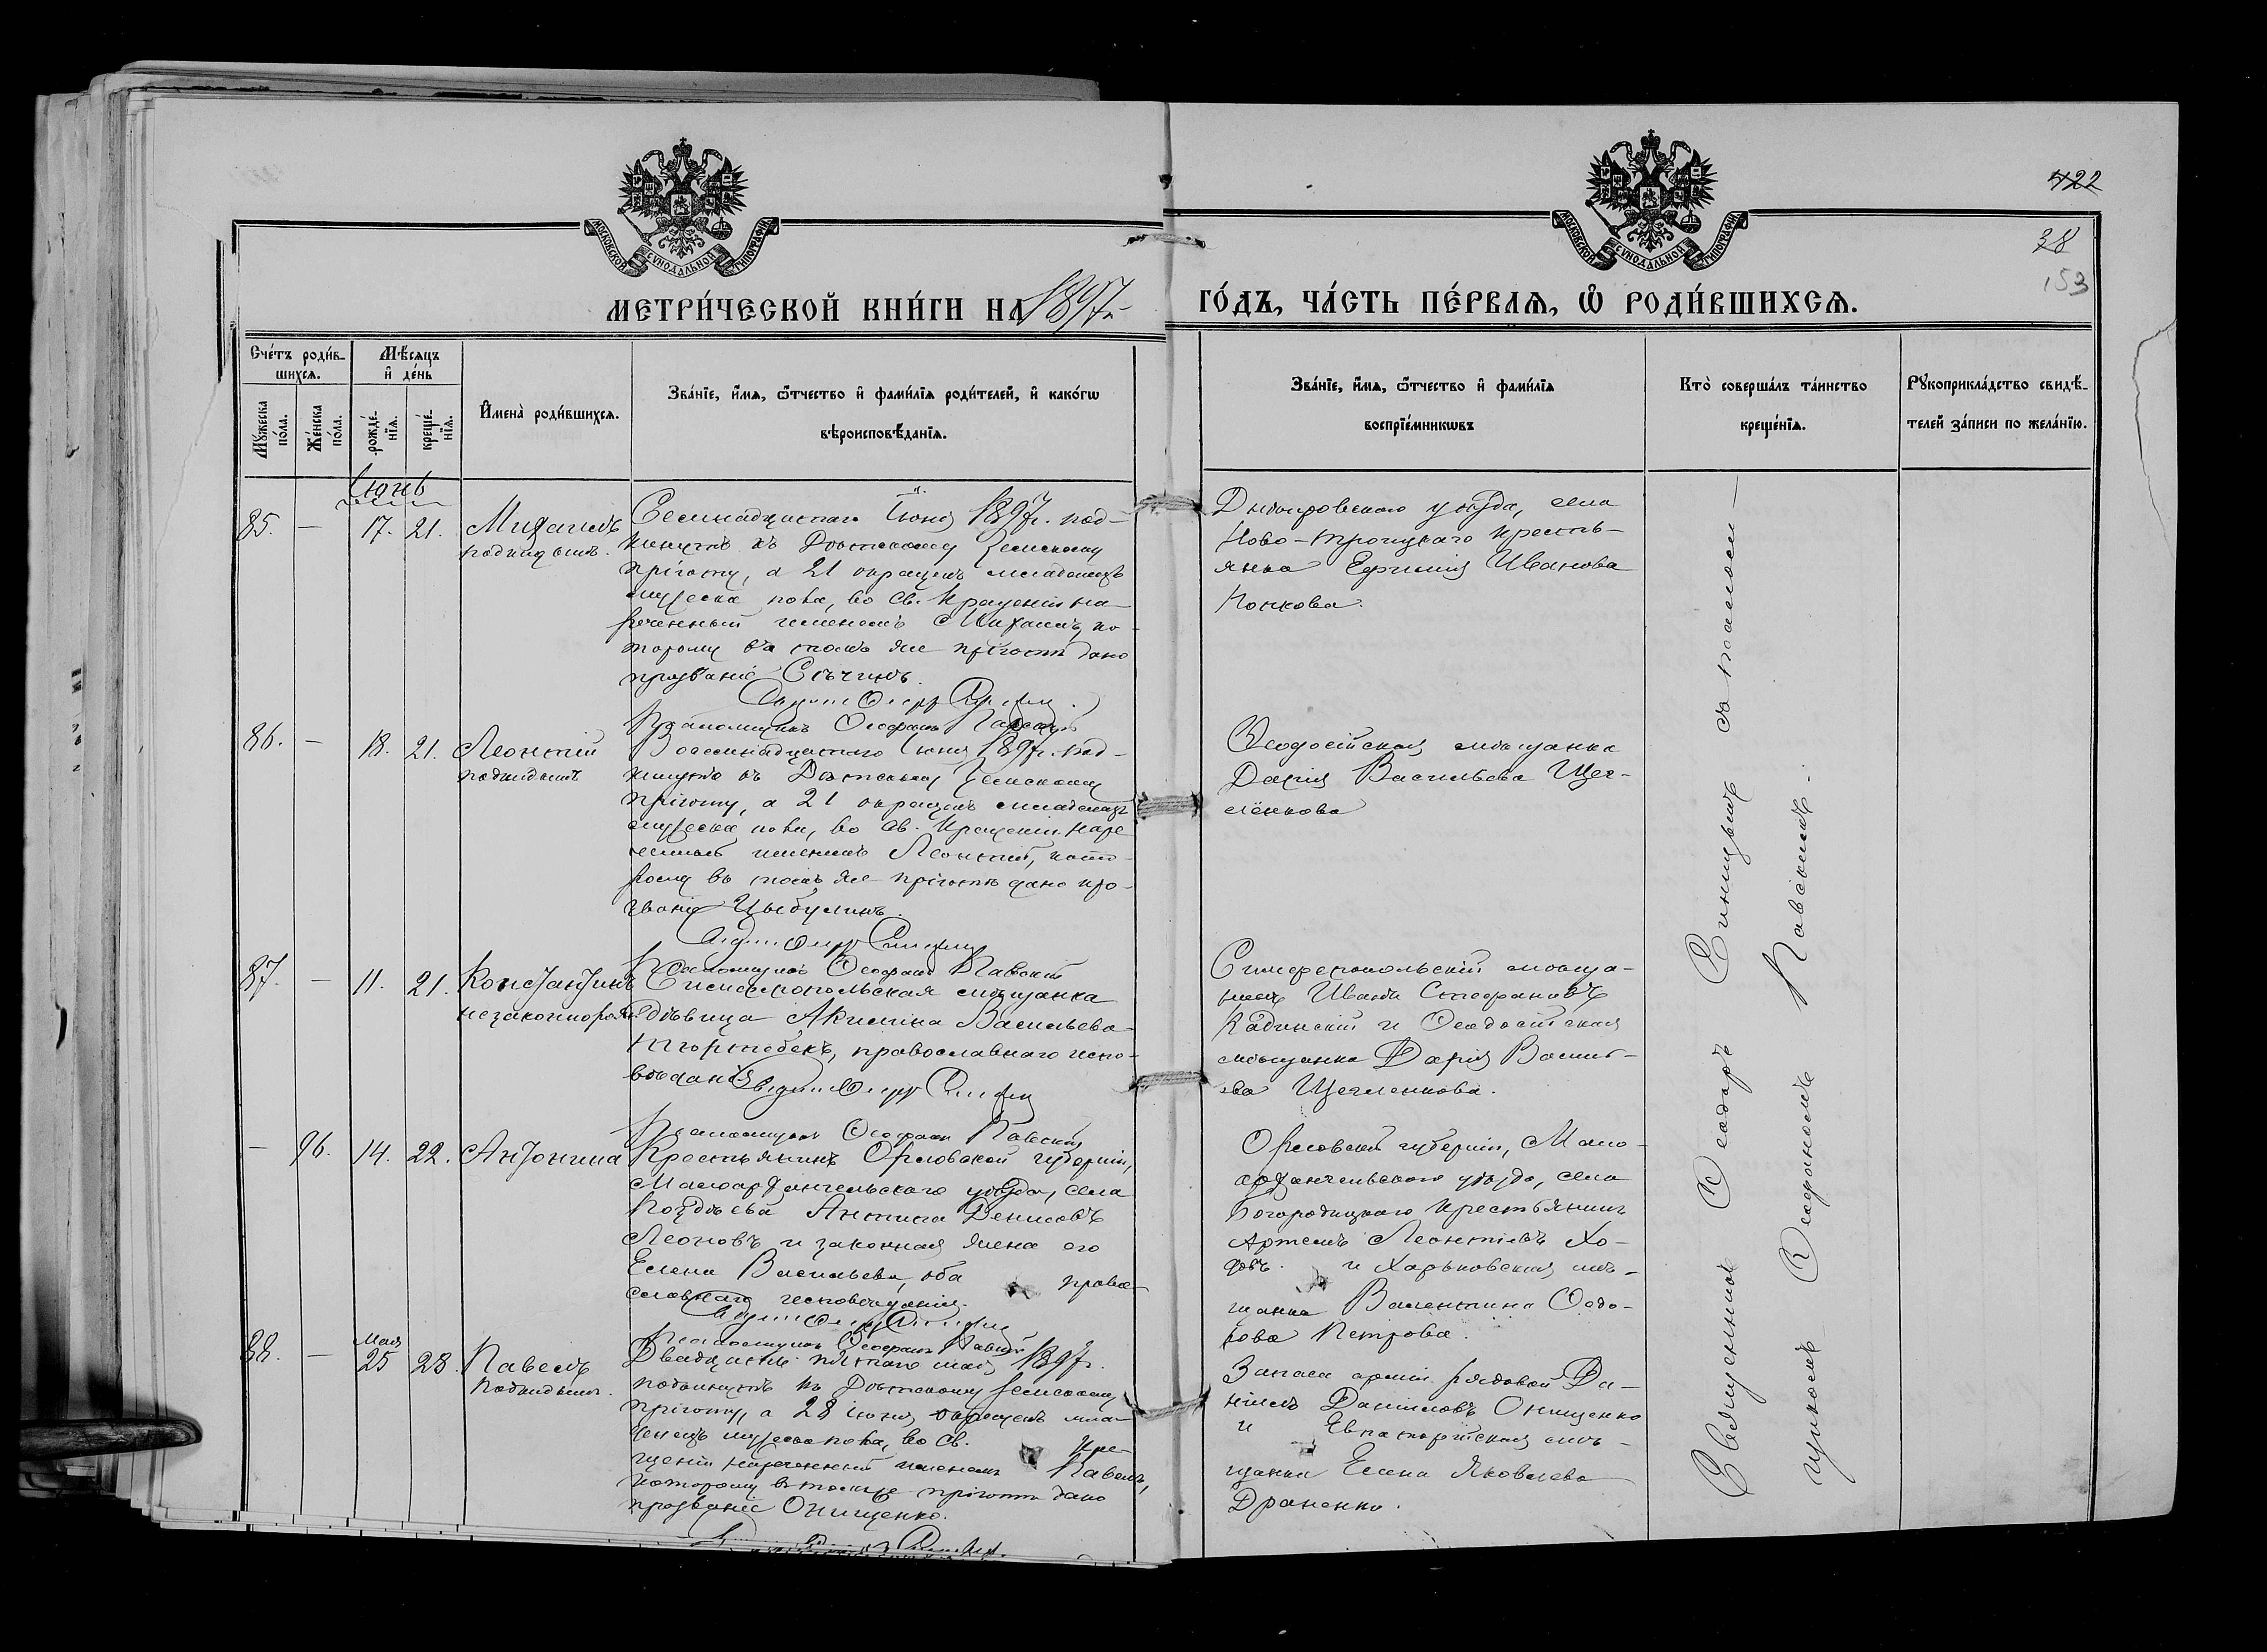 422
38
153
МОСКОВСКОЙ СѴНОДАЛЬНОЙ ТИПОГРАФІИ
МОСКОВСКОЙ СѴНОДАЛЬНОЙ ТИПОГРАФІИ
МЕТРИ́ЧЕСКОЙ КНИ́ГИ НА 1897 г. ГО́ДЪ, ЧА́СТЬ ПЕ́РВАѦ, Ѡ҆ РОДИ́ВШИХСѦ.
Сче́тъ роди́в-
шихсѧ.
Мꙋ́жеска по́ла.
Же́нска по́ла.
Мѣ́сѧцъ
и҆ де́нь
рожде́-нїѧ.
креще́-нїѧ.
И҆мена̀ роди́вшихсѧ.
Зва́нїе, и҆́мѧ, ѻ҆́тчество и҆ фами́лїѧ роди́телей, и҆ како́гѡ
вѣроисповѣ́данїѧ.
Зва́нїе, и҆́мѧ, ѻ҆́тчество и҆ фами́лїѧ
воспрїе́мникѡвъ
Кто̀ соверша́лъ та́инство
креще́нїѧ.
Рꙋкоприкла́дство свидѣ́-
телей за́писи по жела́нїю.
Іюнь
85. — 17. 21. Михаилъ
подкидышъ.
Семнадцатаго Іюня 1897 г. под-
кинутъ къ Дѣтскому Земскому
пріюту, а 21 окрещенъ младенецъ
мужеска пола, во Св. Крещеніи на-
реченный именемъ Михаилъ, ко-
торому въ томъ же пріютѣ дано
прозваніе Сѣчинъ.
Псаломщикъ Ѳеофанъ Павскій
Днѣпровскаго уѣзда, села
Ново-Троицкаго кресть-
янка Ефимія Иванова
Попкова.
86. — 18. 21. Леонтій
подкидышъ
Восемнадцатаго Іюня 1897 г. под-
кинутъ къ Дѣтскому Земскому
пріюту, а 21 окрещенъ младенецъ
мужеска пола, во Св. Крещеніи наре
ченный именемъ Леонтій, кото-
рому въ томъ же пріютѣ дано про-
званіе Цыбулинъ.
Псаломщикъ Ѳеофанъ Павскій
Ѳеодосійская мѣщанка
Дарія Васильева Щег-
лёнкова
87. — 11. 21. Константинъ
незаконнорож.
Симферопольская мѣщанка
дѣвица Акилина Васильева
православнаго испо-
вѣданія
Псаломщикъ Ѳеофанъ Павскій
Симферопольскій мѣща-
нинъ Иванъ Стефановъ
Кадинскій и Ѳеодосійская
мѣщанка Дарія Василь-
ева Щегленкова.
— 96. 14. 22. Антонина
Крестьянинъ Орловской губерніи,
Малоархангельскаго уѣзда, села
Поздѣева Антипа Денисовъ
Леоновъ и законная жена его
Елена Васильева, оба право
славнаго исповѣданія.
Псаломщикъ Ѳеофанъ Павскій
Орловской губерніи, Мало-
архангельскаго уѣзда, села
Богородицкаго крестьянинъ
Артемъ Леонтіевъ Хо-
довъ. и Харьковская мѣ-
щанка Валентина Ѳедо-
рова Петрова.
88. — Мая 25 28. Павелъ
подкидышъ.
Двадцать пятаго мая 1897 г.
подкинутъ къ Дѣтскому Земскому
пріюту, а 28 іюня окрещенъ мла-
денецъ мужеска пола, во Св. Кре-
щеніи нареченный именемъ Павелъ,
которому въ томъ же пріютѣ дано
прозваніе Онищенко.
Запаса арміи рядовой Да-
ніилъ Даниловъ Онищенко
и Евпаторійская мѣ-
щанка Елена Яковлева
Драненко.
Священникъ Ѳеодоръ Синицынъ съ псалом-
щикомъ Ѳеофаномъ Павскимъ.